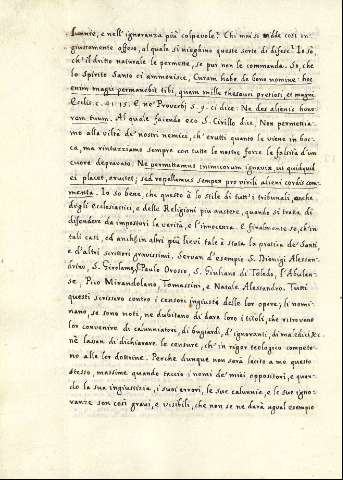 lunnie, e nell'ignoranza più colpevole? Chi mai si vidde così in-
giustamente offeso, al quale si nieghino queste sorte di difese? Io so,
ch'il dritto naturale le permette, se pur non le commanda. So, che
lo Spirito Santo ci ammonisce, Curam habe de bono nomine: hoc
enim magis permanebit tibi, quam mille thesauri pretiosi, et magni.
Eccli. c. 41. 15. E ne' Proverbj 5. 9. ci dice: Ne des alienis hono-
rem tuum. Al quale facendo eco S. Cirillo dice, Non permettia-
mo alla viltà de' nostri nemici, ch'eruttì quanto le viene in boc-
ca, ma rintuzziamo sempre con tutte le nostre forze la falsità d'un
cuore depravato. Ne permittamus inimicorum ignavia, ut quidquid
ei placet, eructet; sed repellamus semper pro virili alieni cordis com-
menta. Io so bene, che questo è lo stile di tutt'i tribunali, anche
degli Ecclesiastici, e delle Religioni più austere, quando si tratta di
difendere da impostori la verità, e l'innocenza. E finalmente so, ch'in
tali casi, ed anch'in altri più lievi tale è stata la pratica de' Santi,
e d'altri scrittori gravissimi. Servan d'esempio S. Dionigi Alessan-
drino, S. Girolamo, Paulo Orosio, S. Giuliano di Toledo, l'Abulen-
se, Pico Mirandolano, Tomassini, e Natale Alessandro. Tutti
questi scrissero contro i censori ingiusti delle lor opere, li nomi-
nano, se sono noti, ne dubitano di dare loro i titoli, che ritrovano
lor convenire di calunniatori, di bugiardi, d'ignoranti, di maledici &c.
nè lasian di dichiarare le censure, ch'in rigor teologico competo-
no alle lor dottrine. Perche dunque non sarà lecito a me questo
stesso, massime quando taccio i nomi de' miei oppositori, e quan-
do la sua ingiustizia, i suoi errori, le sue calunnie, e le sue igno-
ranze son così gravi, e visibili, che non se ne darà agual esempio